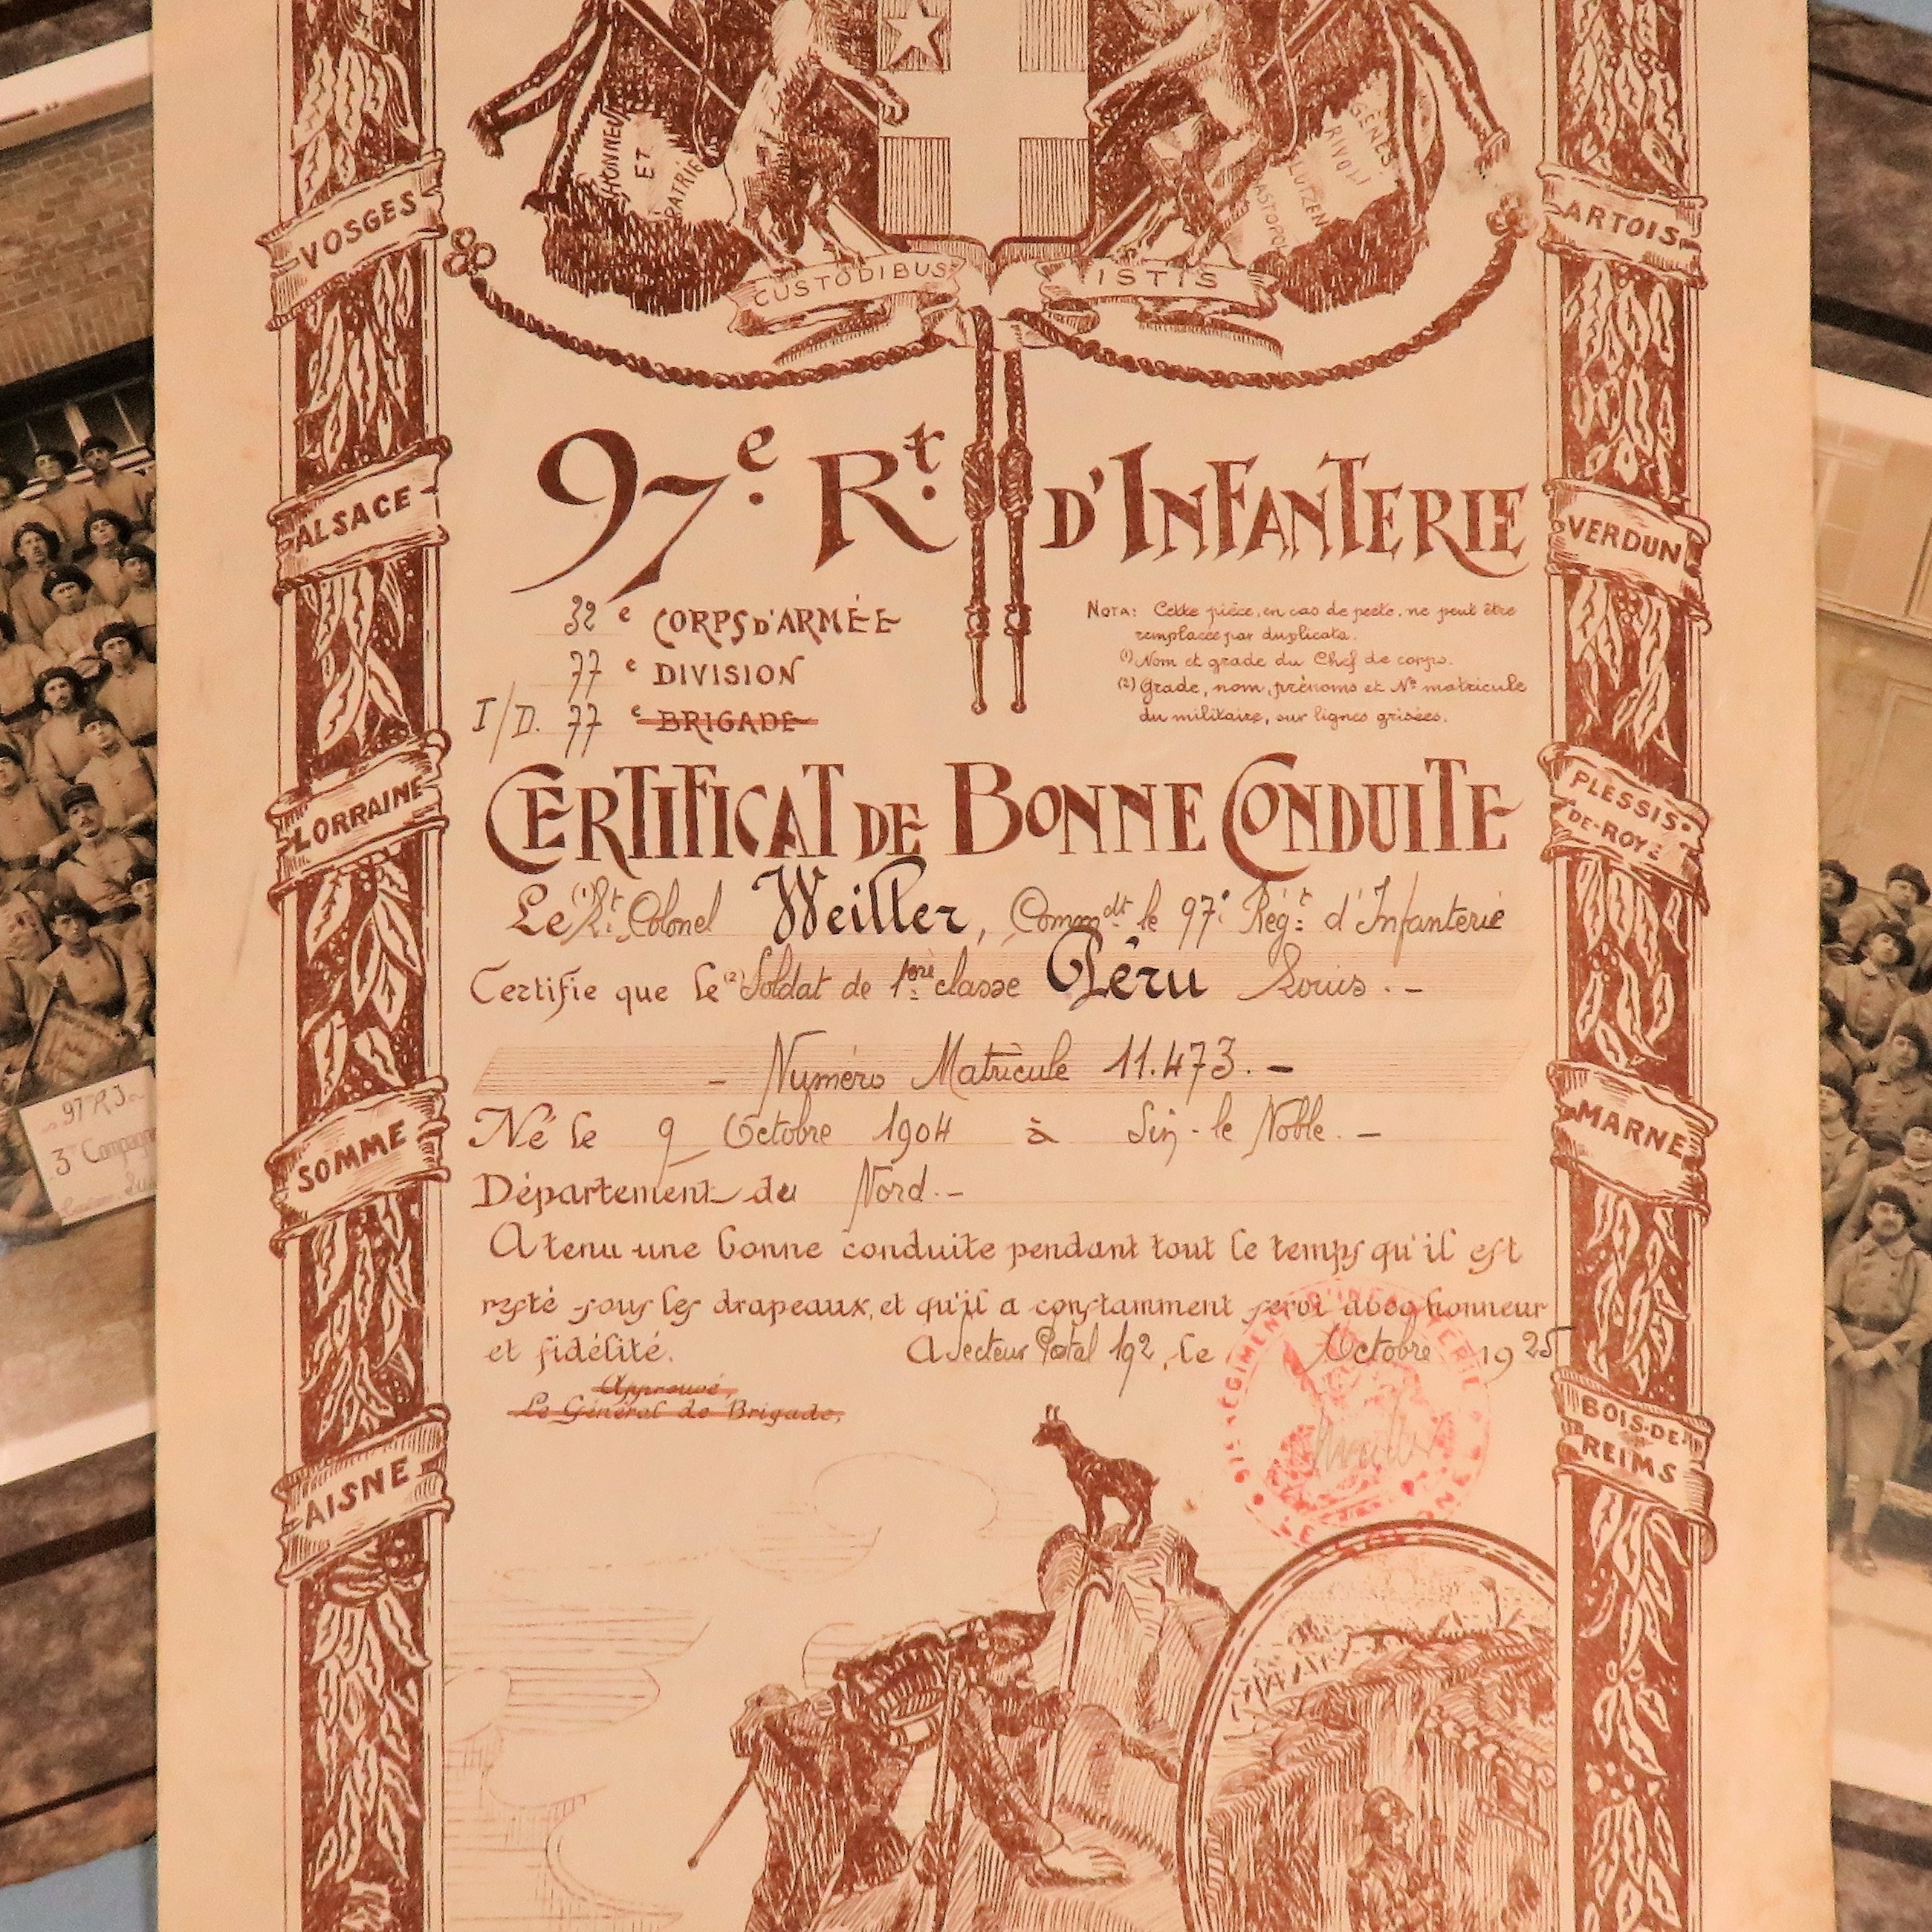 HONNEUR
ET
PATRIE
GÊNES
RIVOLI
LUTZEN
CUSTODIBUS ISTIS
VOSGES
ALSACE
LORRAINE
SOMME
AISNE
ARTOIS
VERDUN
PLESSIS-
DE-ROYE
MARNE
BOIS-DE-
REIMS
97e. Rt. D'INFANTERIE
32 e CORPS D'ARMÉE
77 e DIVISION
I/D. 77 e BRIGADE
NOTA: Cette pièce, en cas de perte, ne peut être
remplacée par duplicata.
(1) Nom et grade du Chef de corps.
(2) Grade, nom, prénoms et No matricule
du militaire, sur lignes grisées.
CERTIFICAT DE BONNE CONDUITE
Le (1) Lt. Colonel Weiller, Commdt le 97e Régt d'Infanterie
Certifie que le (2) Soldat de 1ère classe Péru Louis. -
- Numéro Matricule 11.473. -
Né le 9 Octobre 1904 à Sin-le Noble. -
Département du Nord. -
A tenu une bonne conduite pendant tout le temps qu'il est
resté sous les drapeaux, et qu'il a constamment servi avec honneur
et fidélité. A Secteur Postal 192, le Octobre 1925
Approuvé,
Le Général de Brigade,
97 R.I.
3e Compagn